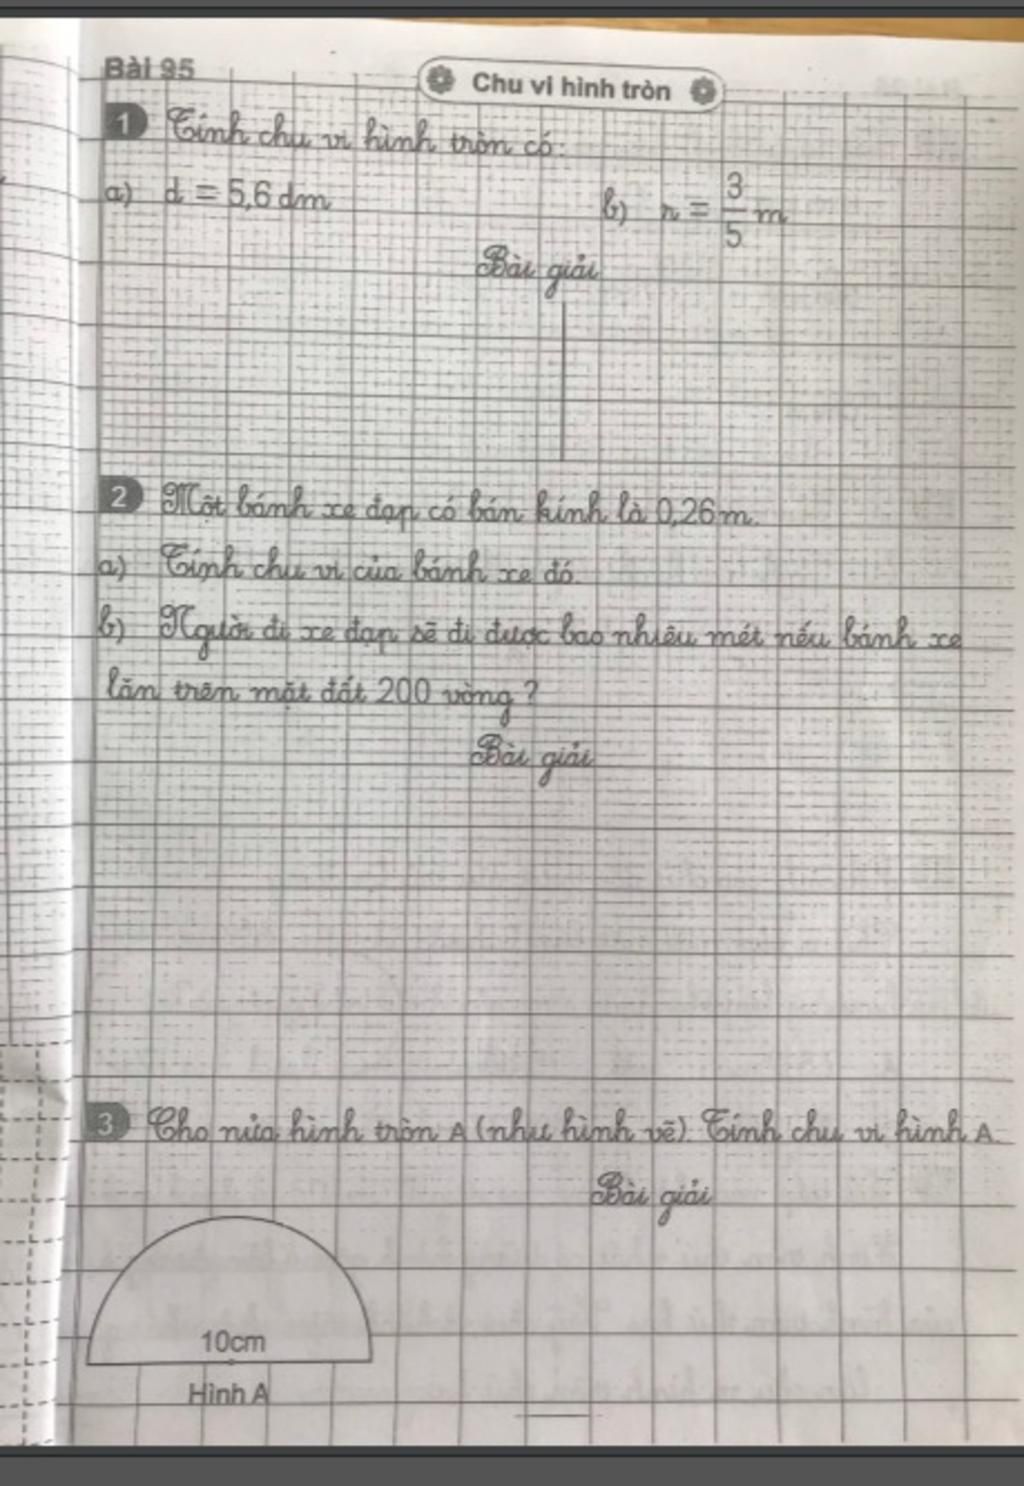 Bài 95
Chu vi hình tròn
1 Tính chu vi hình tròn có:
a) d = 5,6 dm
b) r = 3/5 m
Bài giải
2 Một bánh xe đạp có bán kính là 0,26m.
a) Tính chu vi của bánh xe đó.
b) Người đi xe đạp sẽ đi được bao nhiêu mét nếu bánh xe
lăn trên mặt đất 200 vòng?
Bài giải
3 Cho nửa hình tròn A (như hình vẽ). Tính chu vi hình A.
Bài giải
10cm
Hình A